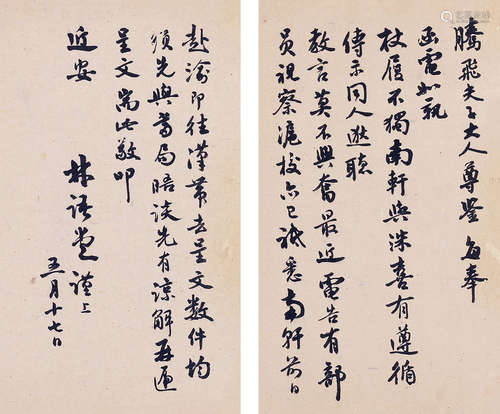 騰飛夫子大人尊鑒每奉
函電如親
杖履不獨南軒與深喜有遵循
傳示同人逖聽
教言莫不興奮最近電告有部
員視察滬校亦已祗悉南軒前日
赴渝即往漢帶去呈文數件均
須先與當局晤談先有諒解再遞
呈文耑此敬叩
近安
林語堂謹上
五月十七日